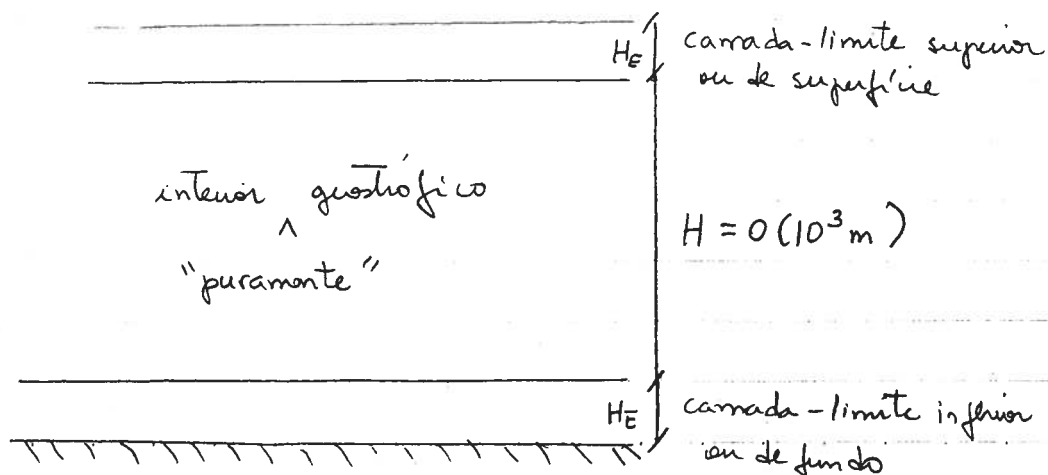 H_E
camada-limite superior
ou de superfície
interior ^ geostrófico
"puramente"
H = O(10³ m)
H_E
camada-limite inferior
ou de fundo